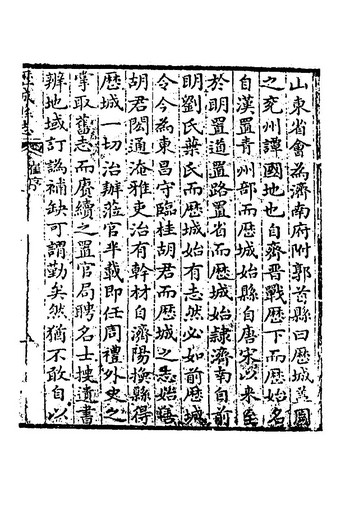 山東省會為濟南府附郭首縣曰歷城蓋國
之兗州譚國地也自齊晉戰歷下而歷始名
自漢置青州部而歷城始縣自唐宋以來至
於明置道置路置省而歷城始隸濟南自前
明劉氏葉氏而歷城始有志然必如前歷城
令今為東昌守臨桂胡君而歷城之志始
胡君閎通淹雅吏治有幹材自濟陽換縣得
歷城一切治辦蒞官半載即任周禮外史之
掌取舊志而賡續之置官局聘名士搜遺書
辨地域訂譌補缺可謂勤矣然猶不敢自以
序